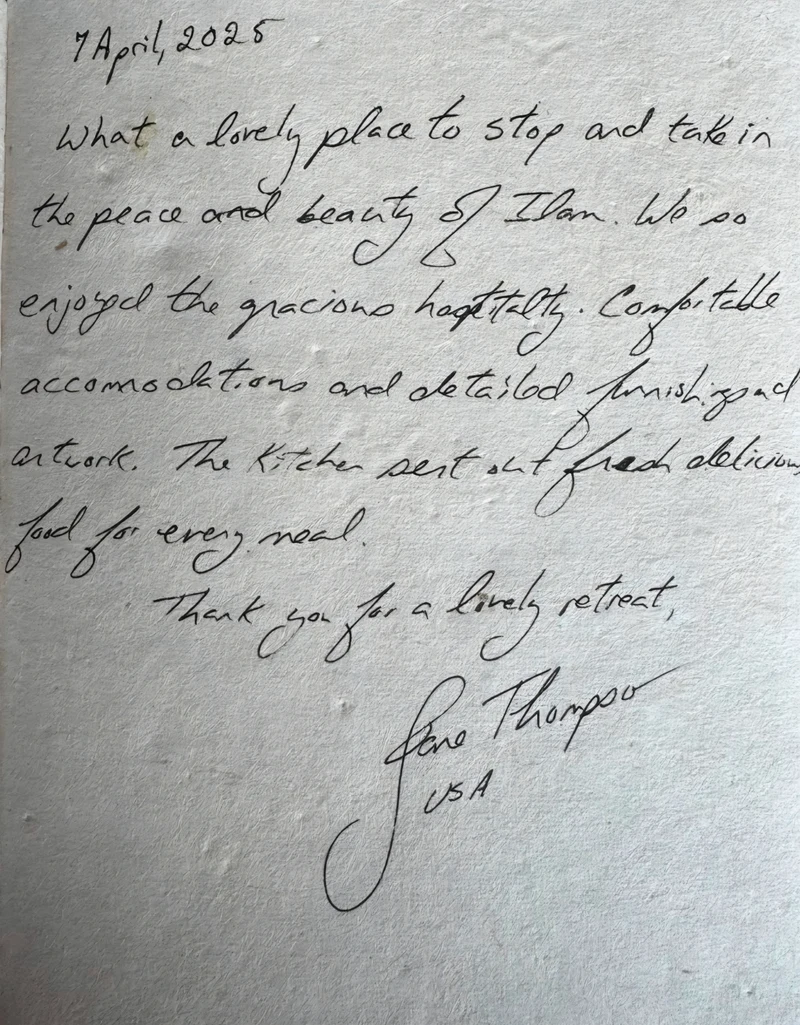 7 April, 2025
What a lovely place to stop and take in
the peace and beauty of Ilam. We so
enjoyed the gracious hospitalty. Comfortable
accomodations and detailed furnishings and
artwork. The Kitchen sent out fresh delicious
food for every meal.
Thank you for a lovely retreat,
Jane Thompson
USA